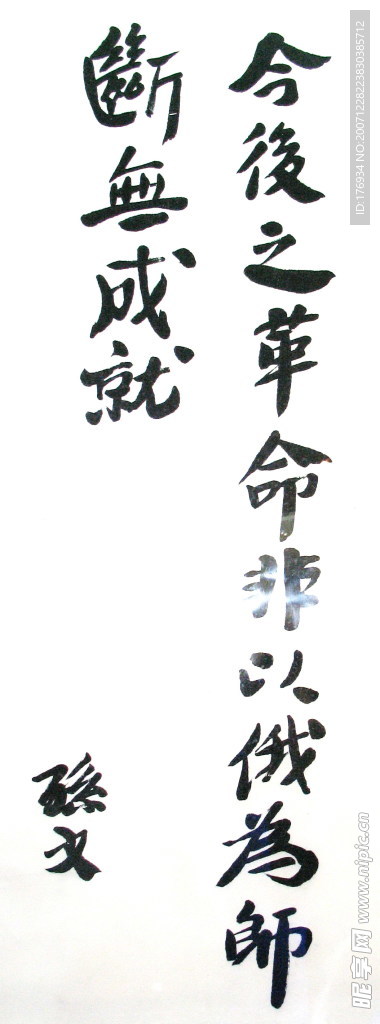 今後之革命非以俄為師
斷無成就
孫文
ID:176934 NO:20071228223830385712
昵享网 www.nipic.cn